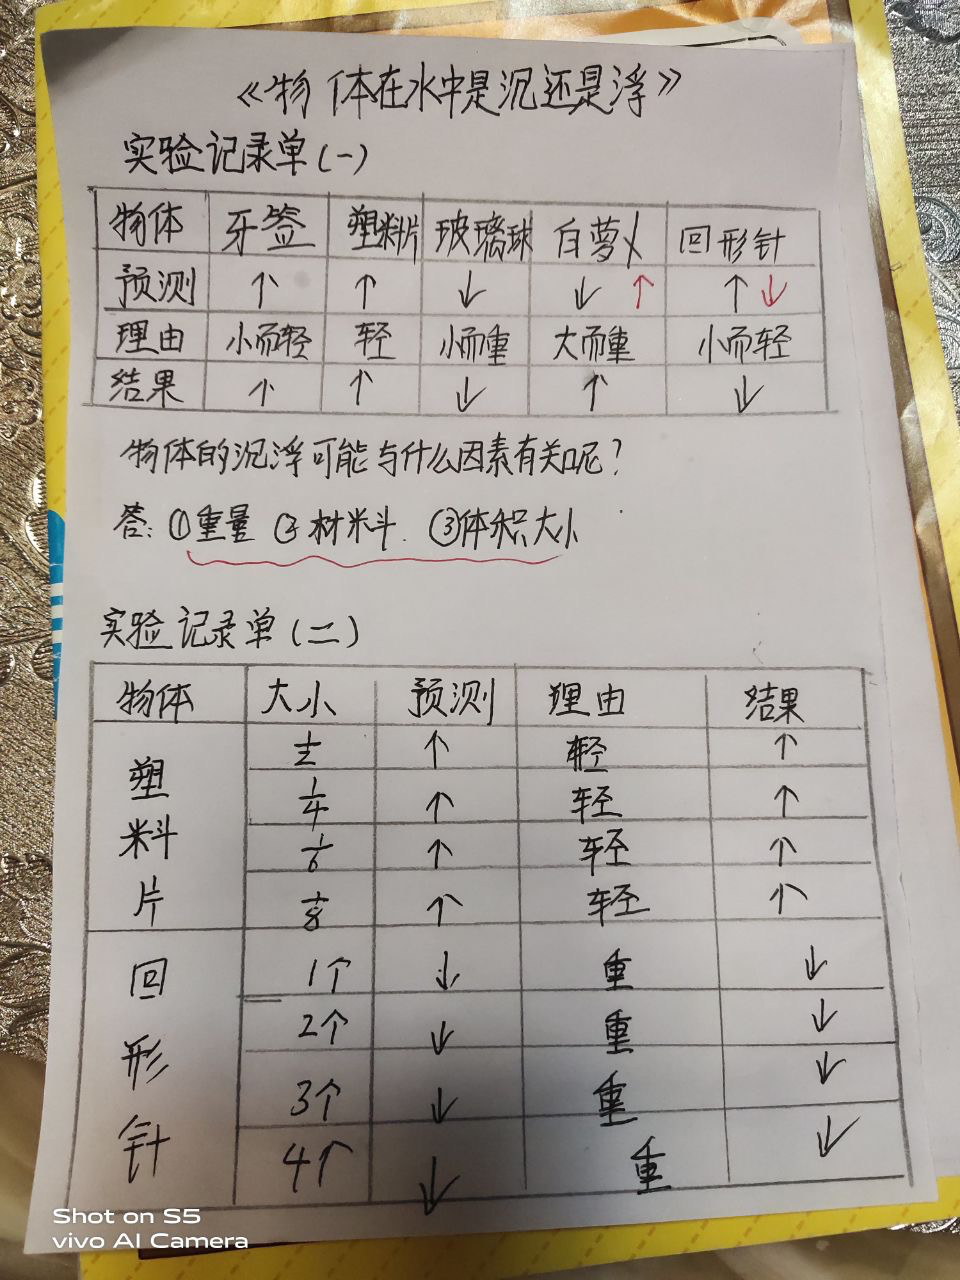 《物体在水中是沉还是浮》
实验记录单(一)
物体 牙签 塑料片 玻璃球 白萝卜 回形针
预测 ↑ ↑ ↓ ↓ ↑ ↑ ↓
理由 小而轻 轻 小而重 大而重 小而轻
结果 ↑ ↑ ↓ ↑ ↓
物体的沉浮可能与什么因素有关呢?
答:①重量 ②材料. ③体积大小
实验记录单(二)
物体 大小 预测 理由 结果
塑料片 1/2 ↑ 轻 ↑
1/4 ↑ 轻 ↑
1/6 ↑ 轻 ↑
1/8 ↑ 轻 ↑
回形针 1个 ↓ 重 ↓
2个 ↓ 重 ↓
3个 ↓ 重 ↓
4个 ↓ 重 ↓
Shot on S5
vivo AI Camera